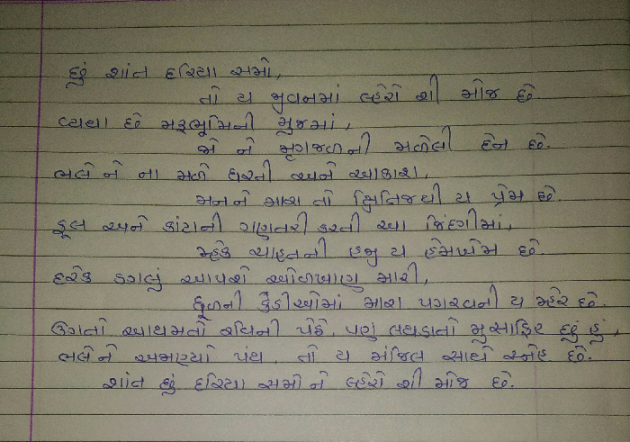 છું શાંત દરિયા સમો,
તો ય જીવનમાં લ્હેરો શી મોજ છે.
વ્યથા છે મરૂભૂમિની મુજમાં,
જો ને મૃગજળની મળેલી દેન છે.
ભલે ને ના મળે ધરતી અને આકાશ,
મનને મારા તો ક્ષિતિજથી ય પ્રેમ છે.
ફૂલ અને કાંટાની ગણતરી કરતી આ જિંદગીમાં,
મ્હેક ચાહતની હજુ ય હેમખેમ છે.
દરેક ડગલું આપશે ઓળખાણ મારી,
ધૂળની કેડીઓમાં મારા પગરવની ય મ્હેર છે.
ઉગતો આથમતો રવિની પેઠે, પણ લથડાતો મુસાફિર છું હું,
ભલેને અજાણ્યો પંથ, તો ય મંજિલ સાથે સ્નેહ છે.
શાંત છું દરિયા સમો ને લ્હેરો શી મોજ છે.